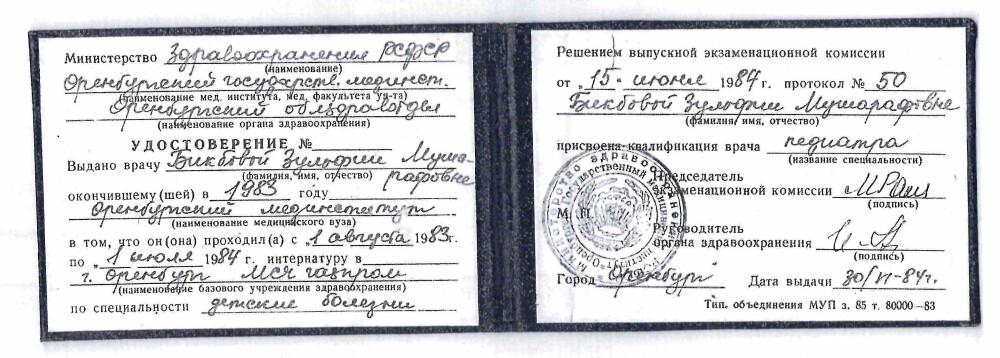 Министерство Здравоохранения РСФСР
(наименование)
Оренбургский государств. мединст.
(наименование мед. института, мед. факультета ун-та)
Оренбургский облздравотдел
(наименование органа здравоохранения)
УДОСТОВЕРЕНИЕ №
Выдано врачу Бикбовой Зульфии Муша-
(фамилия, имя, отчество) рафовне
окончившему(шей) в 1983 году
Оренбургский мединститут
(наименование медицинского вуза)
в том, что он(она) проходил(а) с „1 августа 1983г.
по „1 июля 1984 г. интернатуру в
г. Оренбург МСЧ газпром
(наименование базового учреждения здравоохранения)
по специальности детские болезни
Решением выпускной экзаменационной комиссии
от „15" июня 1984 г. протокол № 50
Бикбовой Зульфии Мушарафовне
(фамилия, имя, отчество)
присвоена квалификация врача педиатра
(название специальности)
Председатель
экзаменационной комиссии
(подпись)
М. П.
Руководитель
органа здравоохранения
(подпись)
Город Оренбург Дата выдачи 30/VI-84г.
Тип. объединения МУП з. 85 т. 80000—83